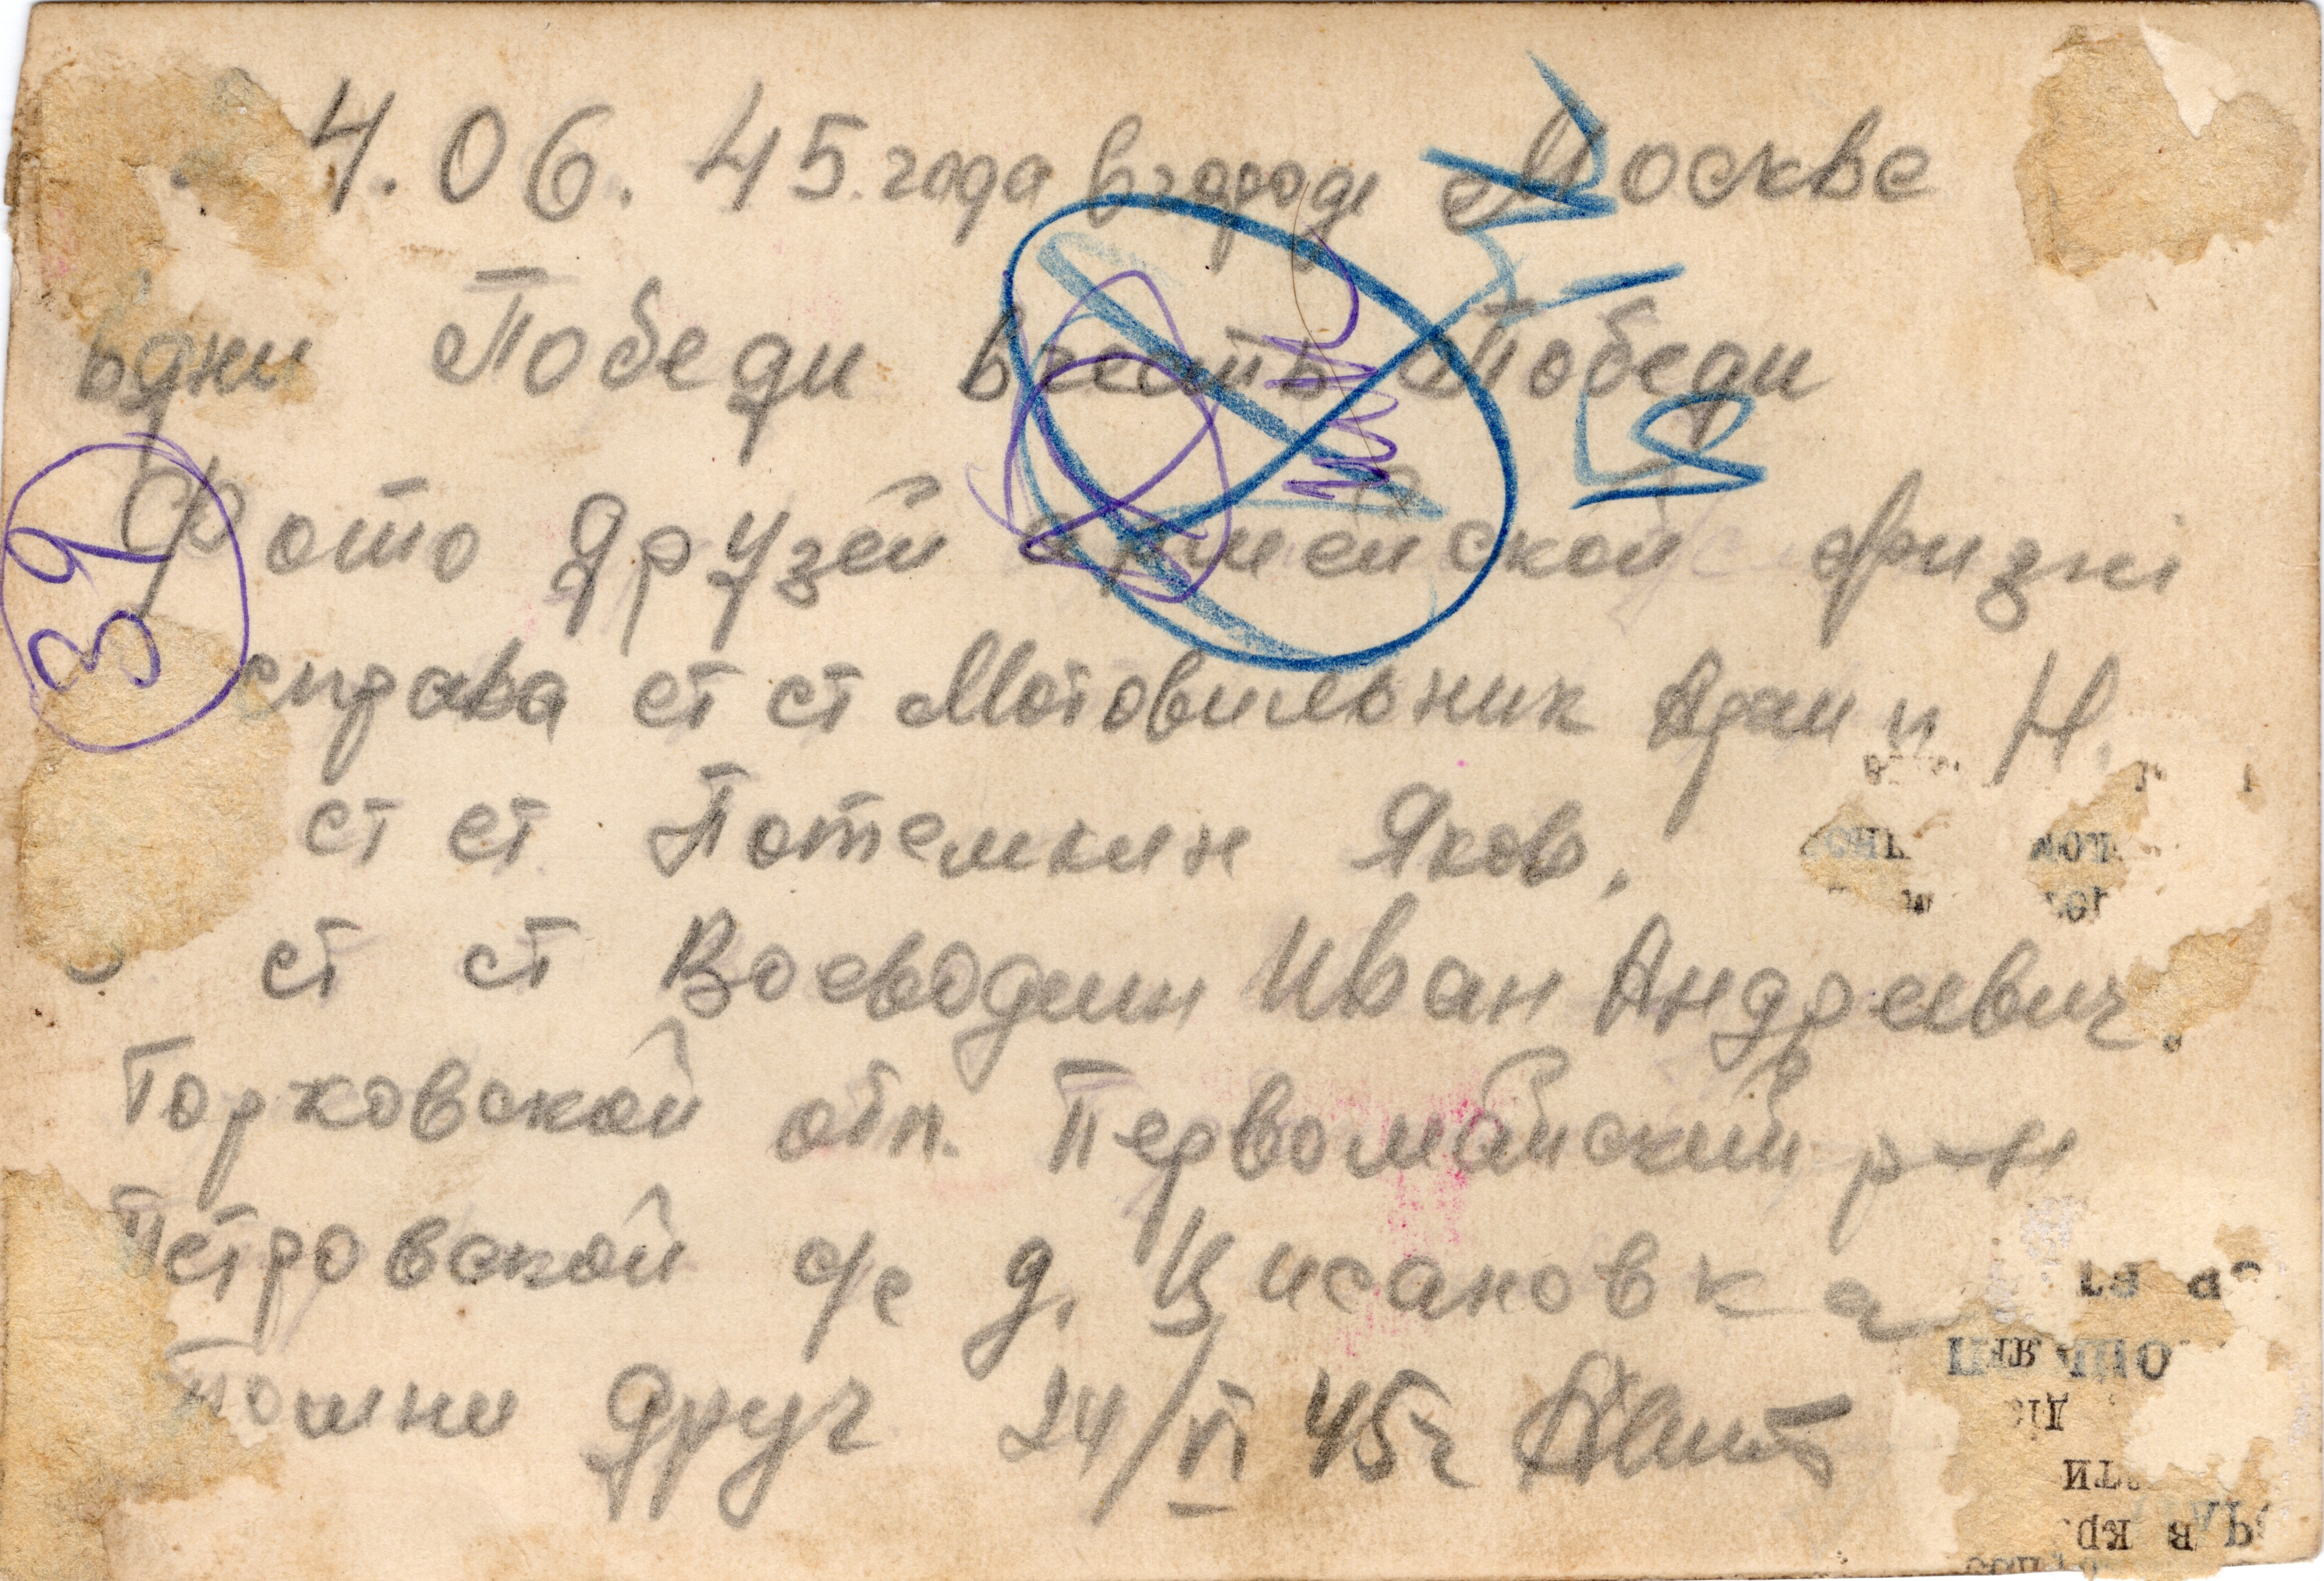 4.06.45.года в городе Москве
в дни Победи в честь Победи
Фото Друзей армейской жизни
39
справа ст ст Мотовильник Адам и Н.
ст ст Потемкин Яков.
ст ст Воеводин Иван Андреевич.
Горковской обл. Первомайский р-н
Петровской с/с д. Кисановка
Помни друг 24/VI 45г